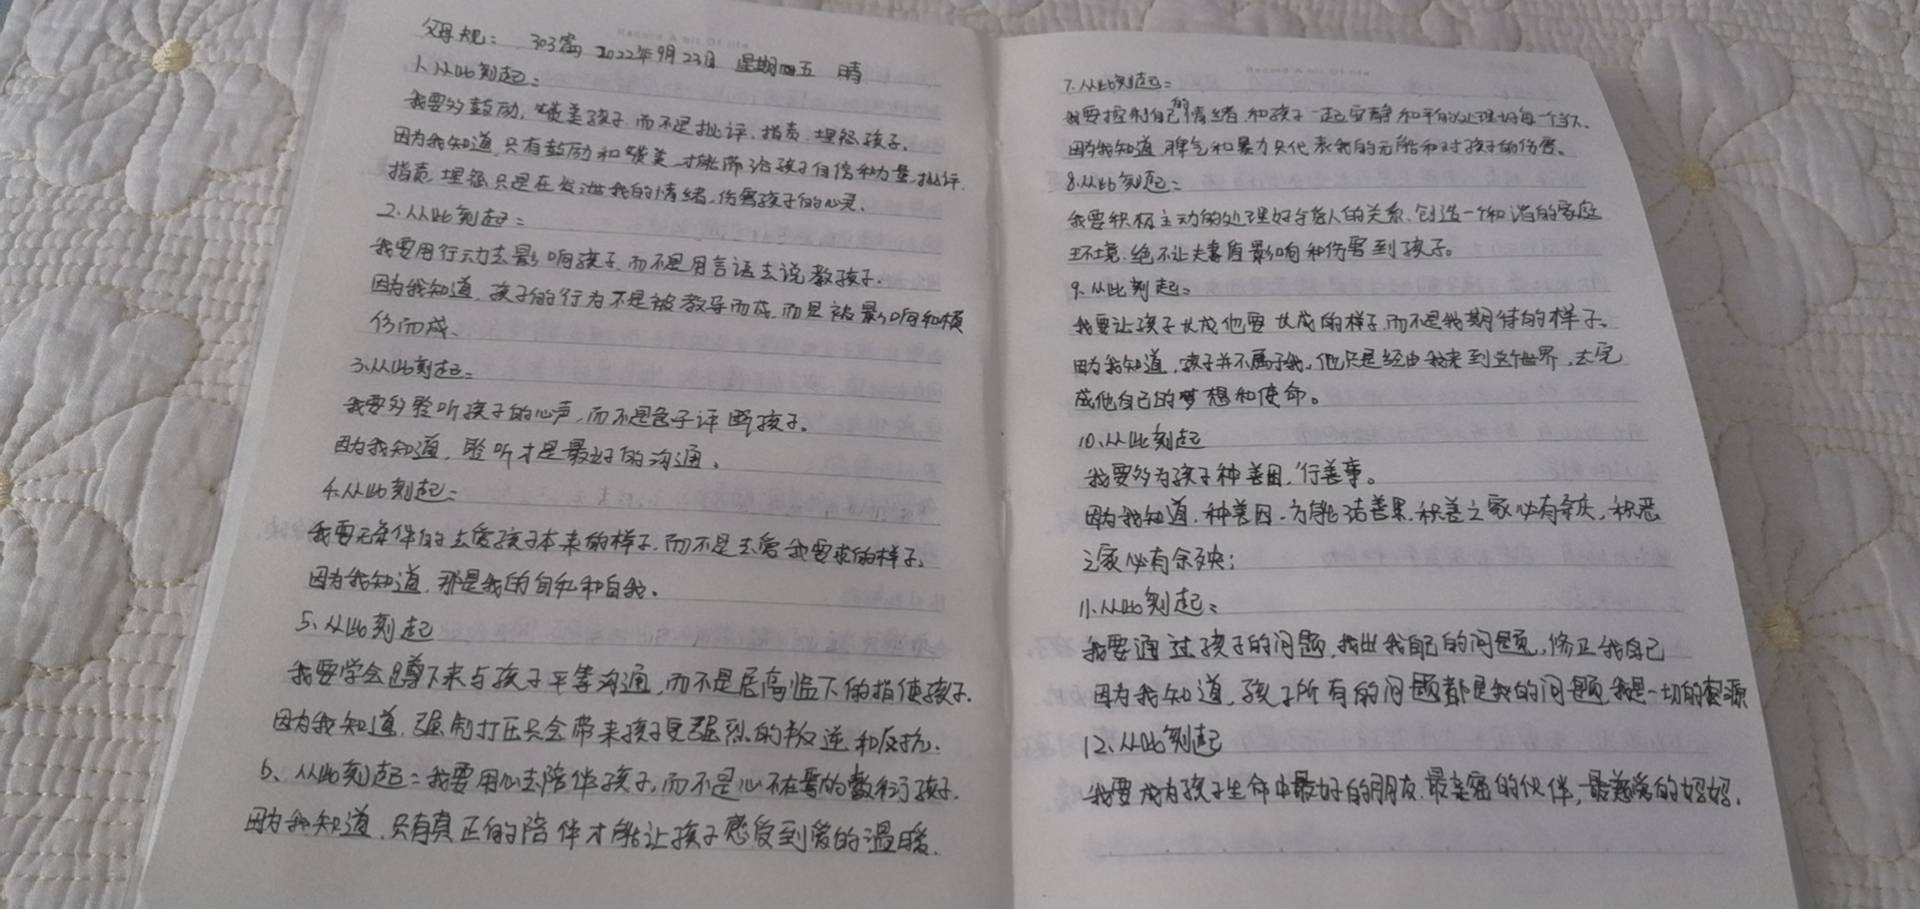 父母规： 303篇 2022年9月23日 星期五 晴
1.从此刻起：
我要多鼓励，赞美孩子，而不是批评，指责，埋怨孩子。
因为我知道，只有鼓励和赞美，才能带给孩子自信和力量，批评，
指责，埋怨只是在发泄我的情绪，伤害孩子的心灵。
2.从此刻起：
我要用行动去影响孩子，而不是用言语去说教孩子。
因为我知道，孩子的行为不是被教导而成，而是被影响和模
仿而成、
3.从此刻起：
我要多聆听孩子的心声，而不是急于评断孩子。
因为我知道，聆听才是最好的沟通。
4.从此刻起：
我要无条件的去爱孩子本来的样子，而不是去爱我要求的样子。
因为我知道，那是我的自私和自我。
5、从此刻起
我要学会蹲下来与孩子平等沟通，而不是居高临下的指使孩子.
因为我知道，强制打压只会带来孩子更强烈的叛逆和反抗.
6、从此刻起：我要用心去陪伴孩子，而不是心不在焉的敷衍孩子.
因为我知道，只有真正的陪伴才能让孩子感受到爱的温暖.
7.从此刻起：
我要控制自己的情绪，和孩子一起安静和平的处理好每一个当下、
因为我知道，脾气和暴力只代表我的无能和对孩子的伤害。
8.从此刻起：
我要积极主动的处理好与爱人的关系，创造一个和谐的家庭
环境，绝不让夫妻盾影响和伤害到孩子。
9.从此刻起：
我要让孩子长成他要长成的样子，而不是我期待的样子。
因为我知道，孩子并不属于我，他只是经由我来到这个世界，去完
成他自己的梦想和使命。
10、从此刻起
我要多为孩子种善因，行善事。
因为我知道，种善因，方能结善果，积善之家必有余庆，积恶
之家必有余殃；
11.从此刻起：
我要通过孩子的问题，找出我自己的问题，修正我自己
因为我知道，孩子所有的问题都是我的问题，我是一切的根源
12.从此刻起
我要成为孩子生命中最好的朋友，最亲密的伙伴，最慈爱的妈妈.